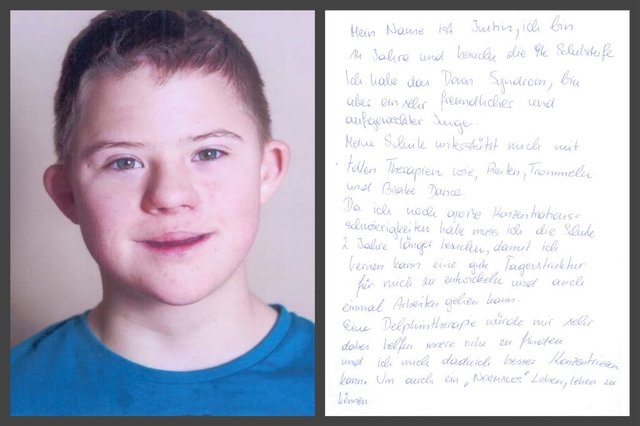 Mein Name ist Justin, ich bin
14 Jahre und besuche die 9te Schulstufe
Ich habe das Down Syndrom, bin
aber ein sehr freundlicher und
aufgeweckter Junge.
Meine Schule unterstützt mich mit
tollen Therapien wie, Reiten, Trommeln
und Brake Dance.
Da ich noch große Konzentrations=
schwierigkeiten habe muss ich die Schule
2 Jahre länger besuchen, damit ich
lernen kann eine gute Tagesstruktur
für mich zu entwickeln und auch
einmal Arbeiten gehen kann.
Eine Delphintherapie würde mir sehr
dabei helfen innere ruhe zu finden
und ich mich dadurch besser Konzentrieren
kann. Um auch ein „NORMALES" Leben, leben zu
können